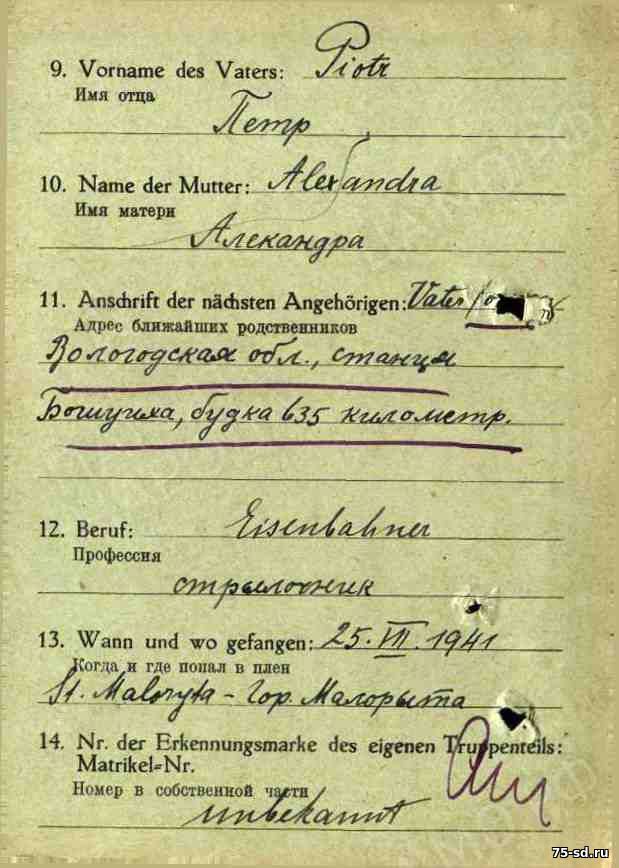 9. Vorname des Vaters: Piotr
Имя отца
Петр
10. Name der Mutter: Alexandra
Имя матери
Алекандра
11. Anschrift der nächsten Angehörigen: Vater
Адрес ближайших родственников
Вологодская обл., станця
Бошуиха, будка 635 километр.
12. Beruf: Eisenbahner
Профессия
стрылочник
13. Wann und wo gefangen: 25. VII. 1941
Когда и где попал в плен
St. Maloryta - Гор. Малорыта
14. Nr. der Erkennungsmarke des eigenen Truppenteils:
Matrikel=Nr.
Номер в собственной части
unbekannt
75-sd.ru